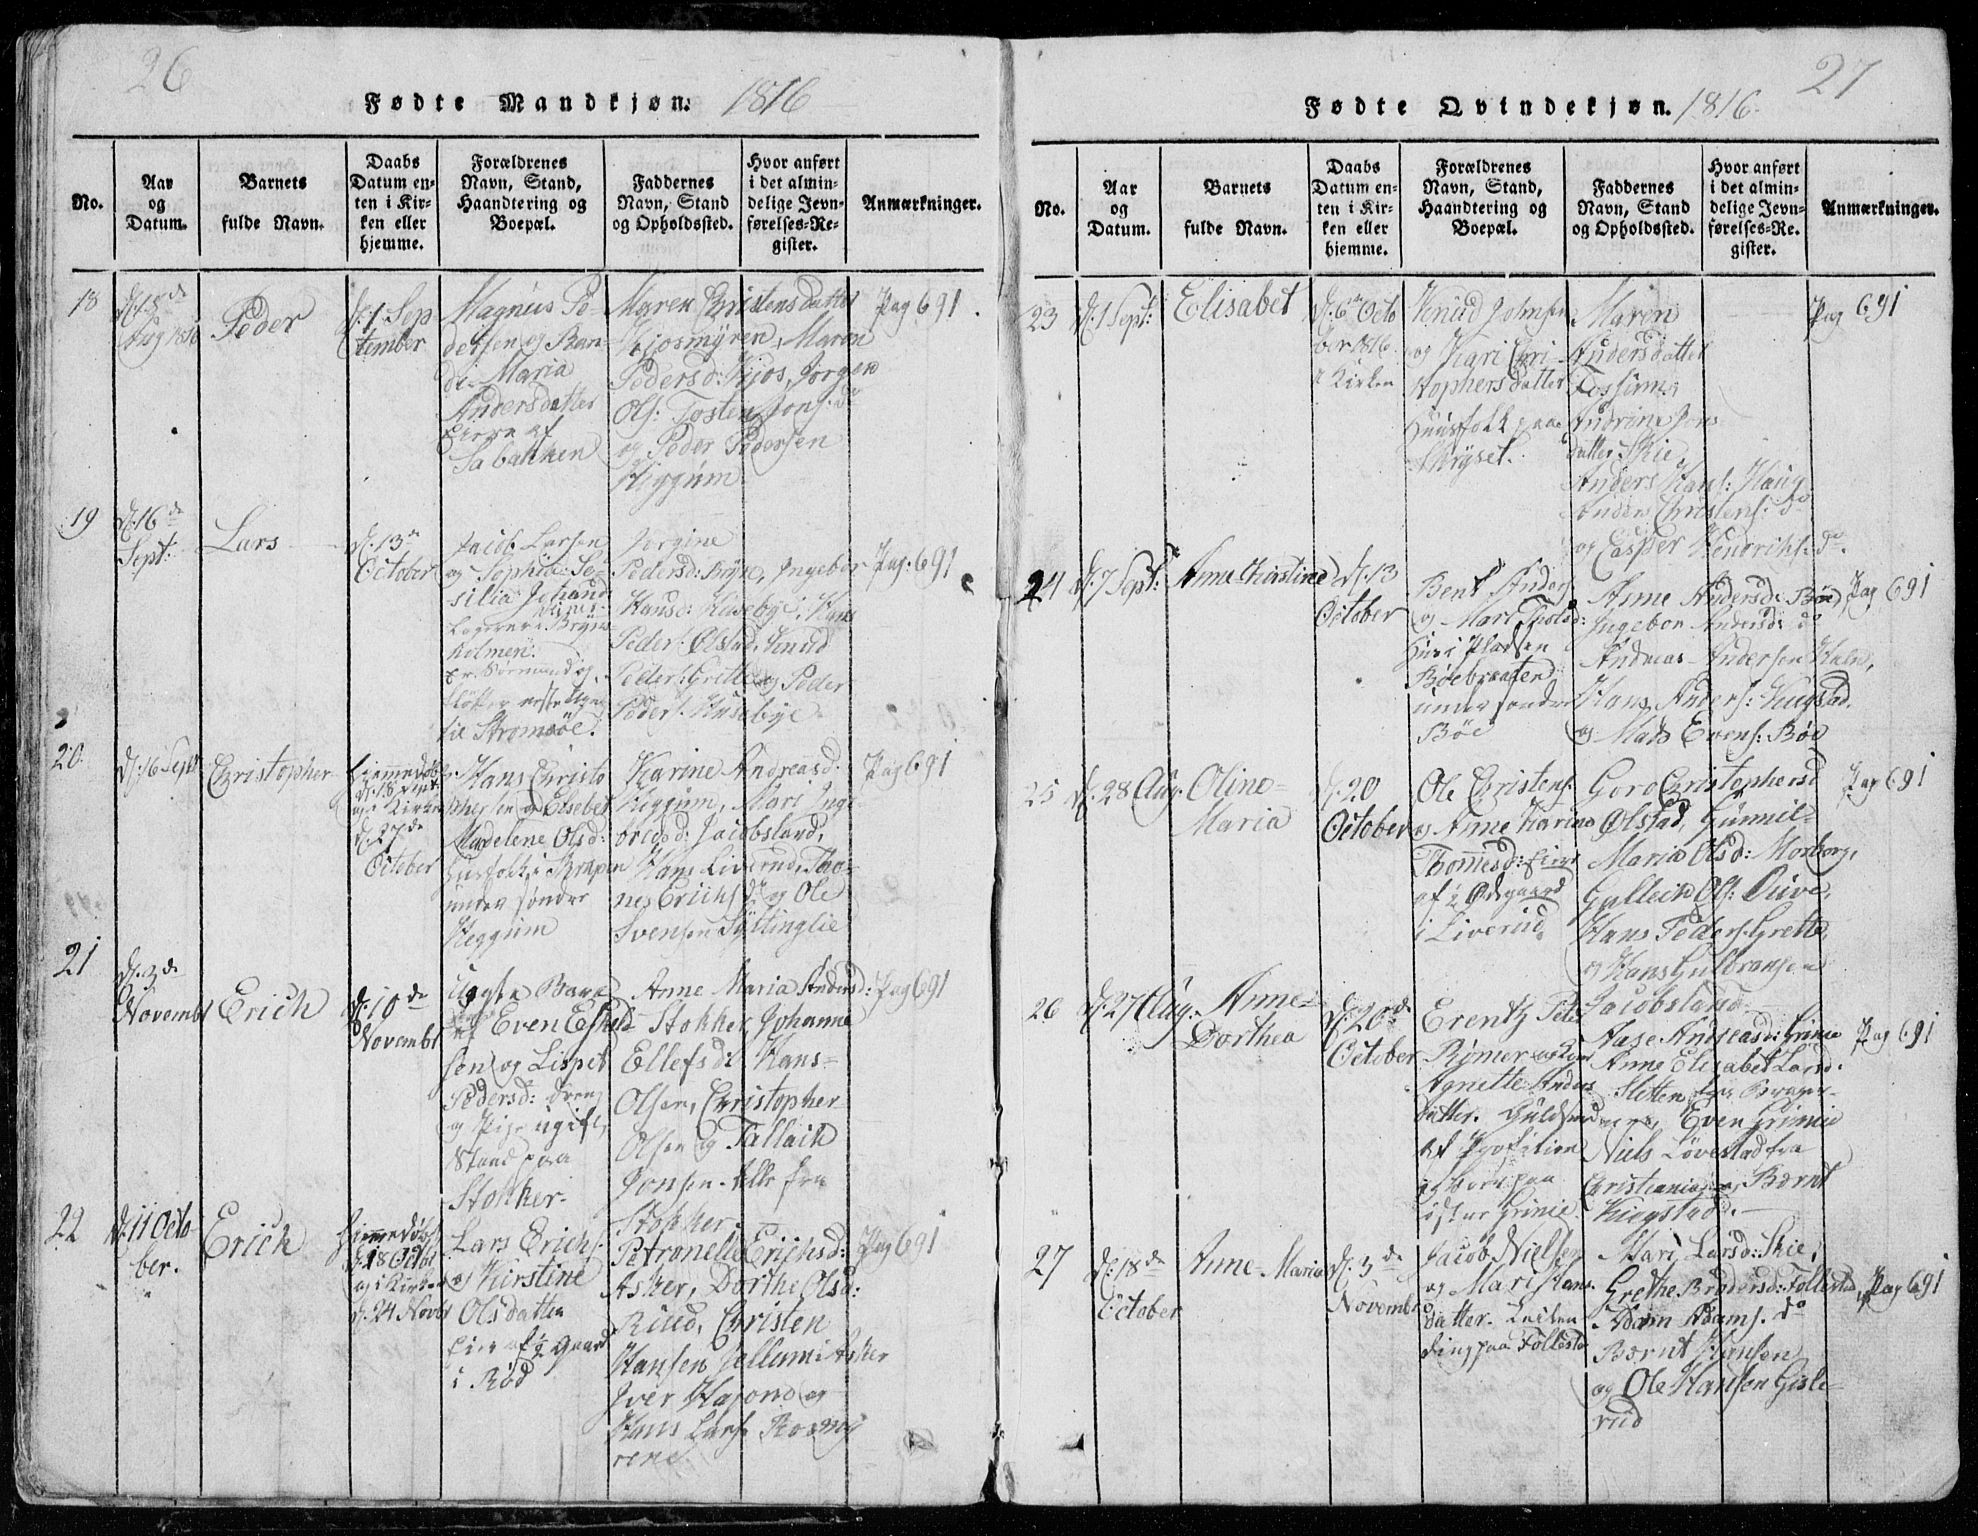 26
Fødte Mandkjøn. 1816
No.
Aar
og
Datum.
Barnets
fulde Navn.
Daabs
Datum en-
ten i Kir-
ken eller
hjemme.
Forældrenes
Navn, Stand,
Haandtering og
Boepæl.
Faddernes
Navn, Stand
og Opholdssted.
Hvor anført
i det almin-
delige Jevn-
førelses-Re-
gister.
Anmærkninger.
18
Aug 1816
Peder
d. 1 Sep
tember
Magnus Pe-
dersen og Ran-
di Maria
Andersdatter
Eiere af
Sabakken
Maren Christensdatter
Kjosmyren, Maren
Pedersd: Kjos, Jørgen
Ols: Tosten Jons: do
og Peder Pedersen
Hyggum
Pag 691
19
d. 16de
Sept:
Lars
d. 13de
October
Jacob Larsen
og Sophia Se-
silia Johand:
Logerer i Bryn
holmen.
Er Sørmand og
til Stromsöe.
Jorgine
Pedersd: Bryn, Ingebor
Hansd: Husebye, Hans
Peders: Ølstad, Knud
Peders: Grette og Peder
Peders: Husebye
Pag: 691
20
d. 16 Sept
Christopher
Hjemmedøbt
d. 18 Sept
og i Kirken
d. 27de
October
Hans Christo
phersen og Elsebet
Madelene Olsd:
Husfolk i Skrapen
under søndre
Heggum
Karine Andreasd:
Heggum, Mari Inge
bredsd: Jacobsland,
Hans Liverud, Tho-
nes Erichs do og Ole
Svensen Syttinglie
Pag 691
21
d. 3de
Novembr
Erich
d. 10de
Novembr
Uægte Barn
af Even Eskeld
sen og Lispet
Pedersd: Dreng
og Pige ugift
Stand paa
Stokker.
Anne Maria Andersd:
Stokker, Johanne
Ellefsd: Hans
Olsen, Christopher
Olsen og Tallaik
Jonsen. Alle fra
Stokker.
Pag 691
22
d. 11 Octo
ber.
Erich
Hjemmedøbt
d. 18 Octob
og i Kirken
d. 24 Novbr
Lars Erichs:
og Kirstine
Olsdatter
Eier af ½ Gaard
i Rød
Petronelle Erichsd:
Asker, Dorthe Olsd:
Ruud, Christen
Hansen Jellum i Asker
Iver Hajorne og
Hans Lars: Rosmyr
rene
Pag 691
27
Fødte Qvindekjøn. 1816.
No.
Aar
og
Datum.
Barnets
fulde Navn.
Daabs
Datum en-
ten i Kir-
ken eller
hjemme.
Forældrenes
Navn, Stand,
Haandtering og
Boepæl.
Faddernes
Navn, Stand
og Opholdssted.
Hvor anført
i det almin-
delige Jevn-
førelses-Re-
gister.
Anmærkninger.
23
d. 1 Sept:
Elisabet
d. 6te Octo
ber 1816
i Kirken
Knud Johnsen
og Kari Chri-
stophersdatter
Huusfolk paa
Maren
Andersdatter
Fossum,
Andrine Jons
datter Skie,
Anders Hans: Haug
Anders Christens: do
og Casper Hendriks: do.
Pag 691
24
d. 7 Sept:
Anne Kirstine
d. 13
October
Bent Anders:
og Mari Thostd:
Huus i Pladsen
Böebraaten
under søndre
Böe
Anne Andersd: Böe
Ingebor Andersd: do
Andreas Andersen Huln,
Hans Anders: Kiegstad,
og Mads Evens: Böe
Pag 691
25
d. 28 Aug.
Oline
Maria
d. 20
October
Ole Christens:
og Anne Karine
Thomesd: Eier
af ½ Ødegaard
i Liverud.
Goro Christophersd
Ølstad, Gunnil-
Maria Olsd: Morberg,
Gulleich Ols: Duve,
Hans Peders: Grette,
og Hans Gulbransen
Jacobsland.
Pag 691
26
d. 27 Aug.
Anne
Dorthea
d. 20de
October
Erentz Peter
Rømer og
Agnette Anders
datter. Guldsmed
af Profession
og boer paa
øster Grinie
Aase Andreasd: Grinie
Anne Elisabet Larsd.
Sletten fra Brager-
næss, Even Grinie
Niels Lövestad fra
Christiania og Bærnt
Kiegstad.
Pag 691
27
d. 18de
October
Anne Maria
d. 3de
Novembr
Jacob Nielsen
og Mari Hans
datter.
paa Follestad
Mari Larsd: Skie,
Grethe Brødersd: Follestad,
Adam Adams: do
Bærnt Hansen
og Ole Hansen Gisle-
rud
Pag 691